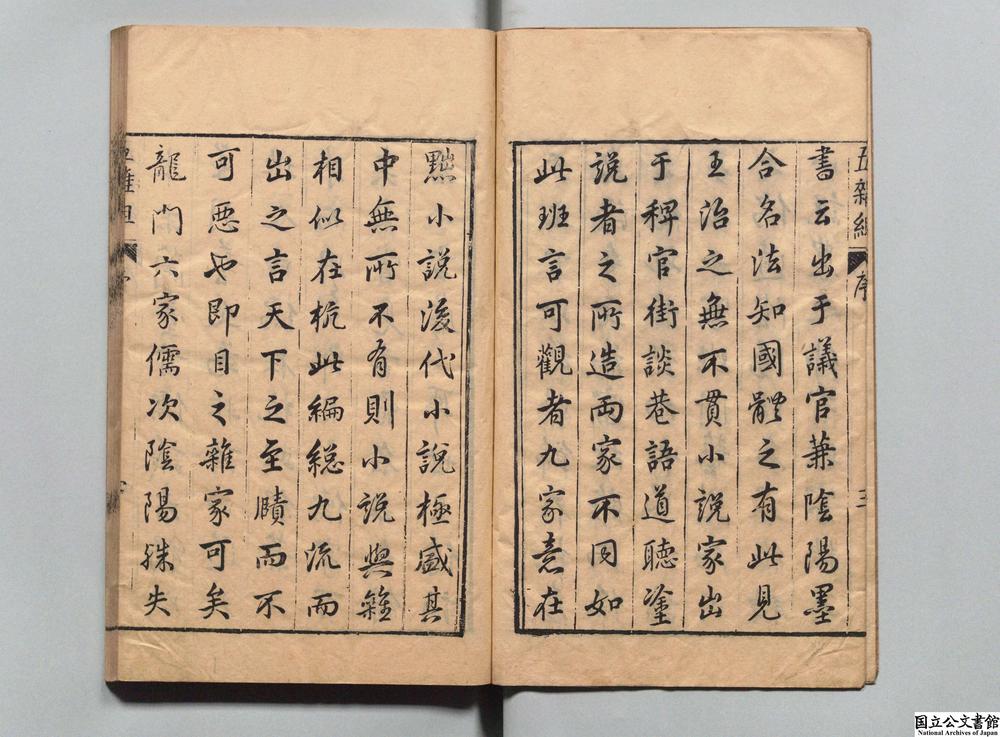 五雜組 序 三
書云出于議官兼陰陽墨
合名法知國體之有此見
王治之無不貫小說家出
于稗官街談巷語道聽塗
說者之所造兩家不同如
此班言可觀者九家意在
黜小說後代小說極盛其
中無所不有則小說與雜
相似在杭此編總九流而
出之言天下之至賾而不
可惡也即目之雜家可矣
龍門六家儒次陰陽殊失
国立公文書館
National Archives of Japan